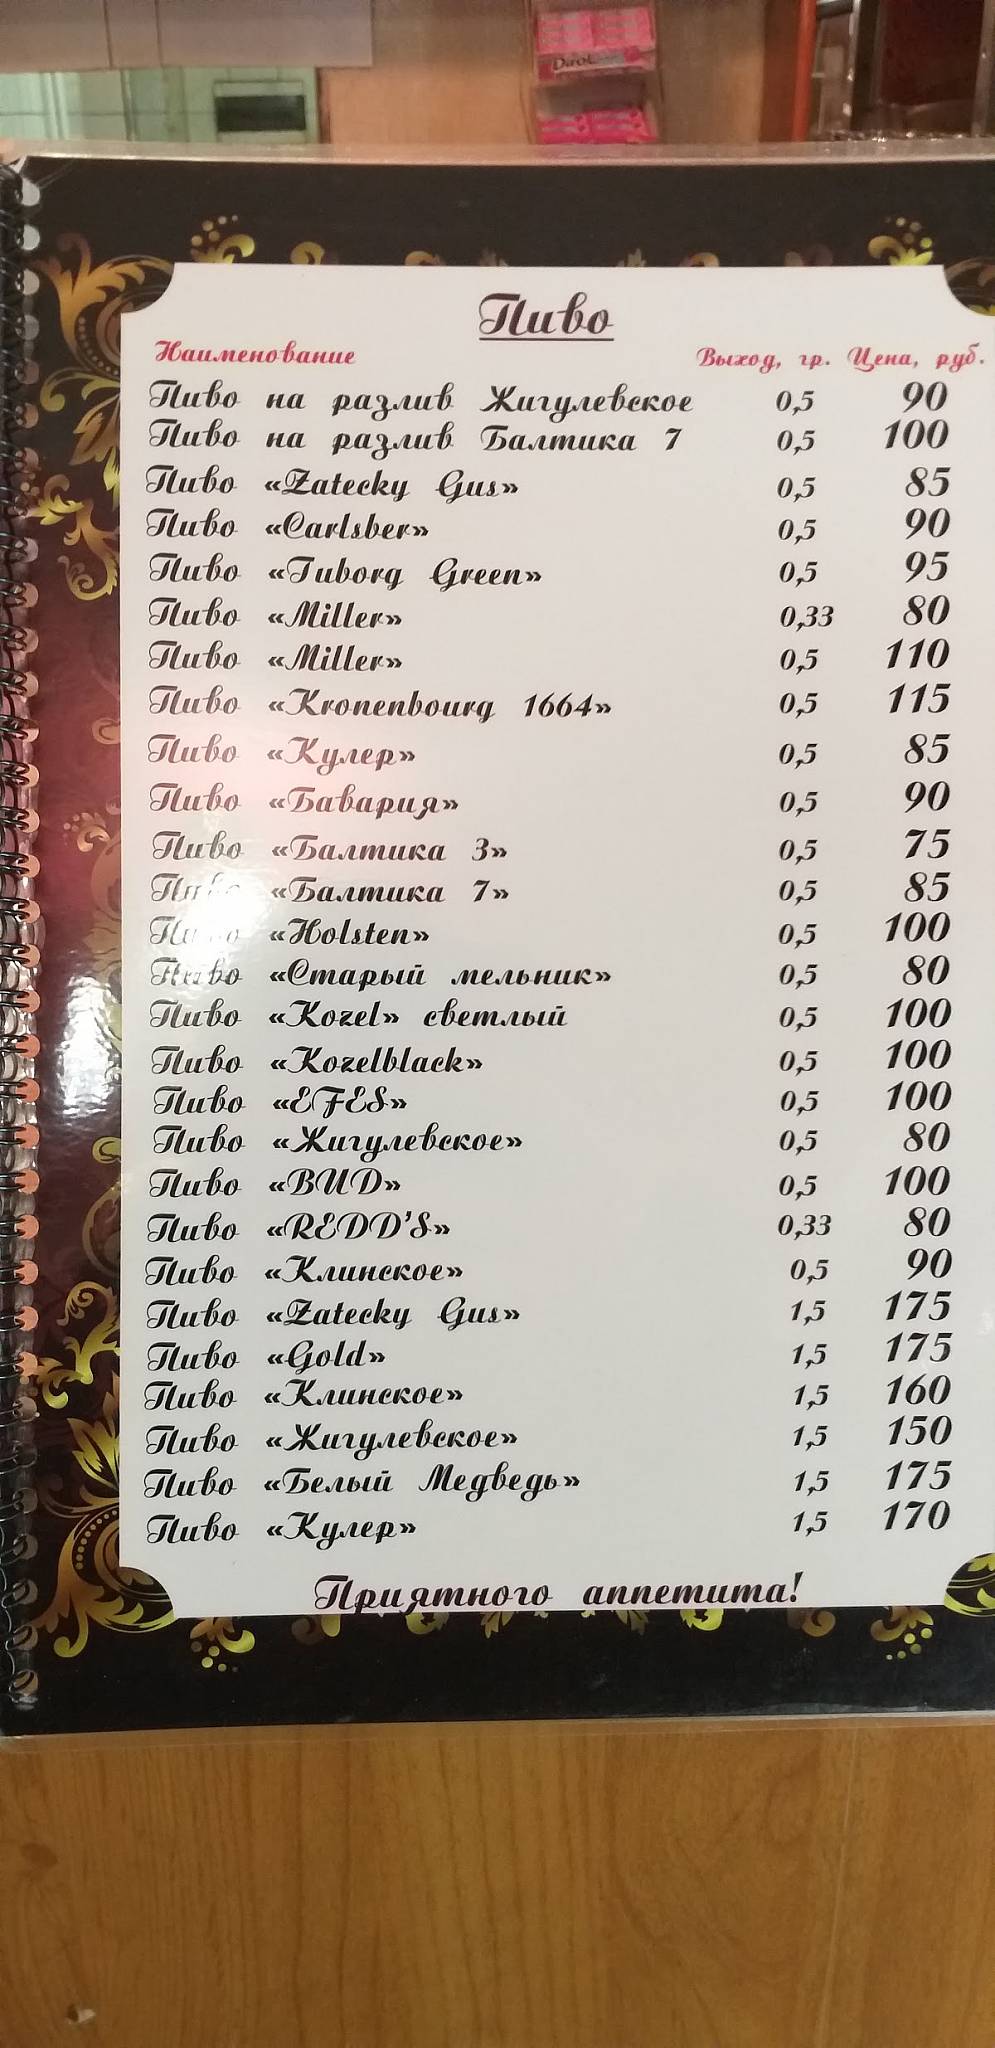 Dirol
Пиво
Наименование Выход, гр. Цена, руб.
Пиво на разлив Жигулевское 0,5 90
Пиво на разлив Балтика 7 0,5 100
Пиво «Zatecky Gus» 0,5 85
Пиво «Carlsber» 0,5 90
Пиво «Tuborg Green» 0,5 95
Пиво «Miller» 0,33 80
Пиво «Miller» 0,5 110
Пиво «Kronenbourg 1664» 0,5 115
Пиво «Кулер» 0,5 85
Пиво «Бавария» 0,5 90
Пиво «Балтика 3» 0,5 75
Пиво «Балтика 7» 0,5 85
Пиво «Holsten» 0,5 100
Пиво «Старый мельник» 0,5 80
Пиво «Kozel» светлый 0,5 100
Пиво «Kozelblack» 0,5 100
Пиво «EFES» 0,5 100
Пиво «Жигулевское» 0,5 80
Пиво «BUD» 0,5 100
Пиво «REDD'S» 0,33 80
Пиво «Клинское» 0,5 90
Пиво «Zatecky Gus» 1,5 175
Пиво «Gold» 1,5 175
Пиво «Клинское» 1,5 160
Пиво «Жигулевское» 1,5 150
Пиво «Белый Медведь» 1,5 175
Пиво «Кулер» 1,5 170
Приятного аппетита!